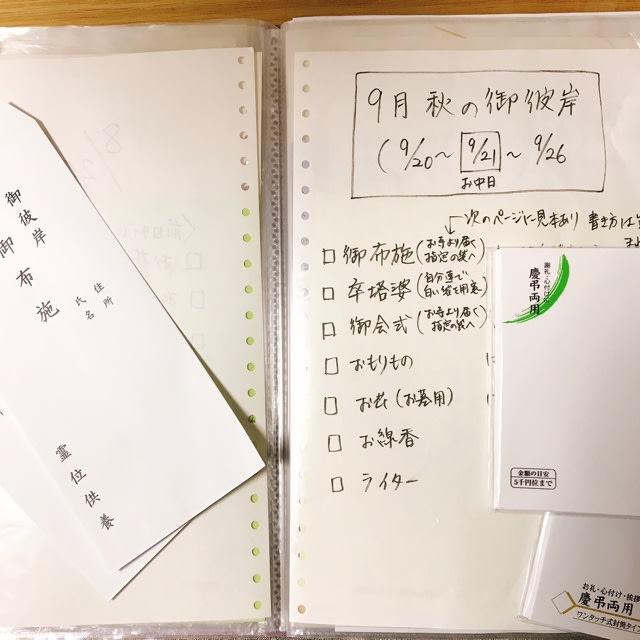 御彼岸
御布施
住所
氏名
霊位供養
9月 秋の御彼岸
(9/20〜9/21〜9/26
お中日
次のページに見本あり 書き方は
御布施(お寺より届く
指定の袋へ)
卒塔婆(自分達で
白い袋を用意)
御会式(お寺より届く
指定の袋へ)
おもりもの
お花(お墓用)
お線香
ライター
謝礼・心付けに
慶弔両用
金額の目安
5千円位まで
お礼・心付け・挨拶
慶弔両用
ワンタッチ式封筒タイ